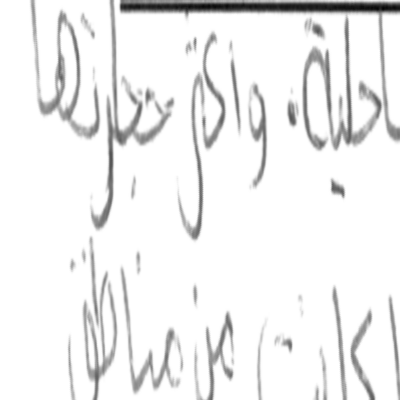 احلية. واكثر حجارتها
كانت من مناطق